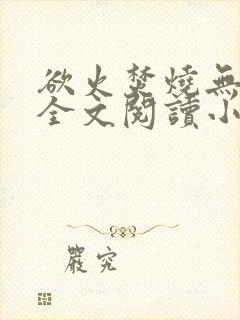 欲火焚燒無
全文閱讀小
嚴究